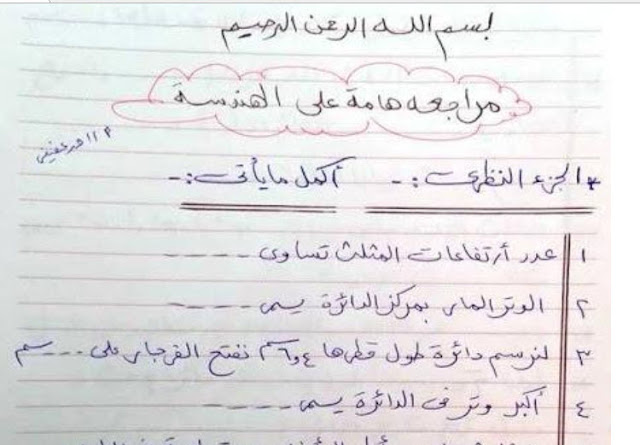 بسم الله الرحمن الرحيم
مراجعه هامة على الهندسة
* الجزء النظرى :- أكمل مايأتى :-
١ عدد أرتفاعات المثلث تساوى -----
٢ الوتر المار بمركز الدائرة يسمى -----
٣ لنرسم دائرة طول قطرها ٦,٤ سم نفتح الفرجار على ---- سم
٤ أكبر وتر فى الدائرة يسمى -----